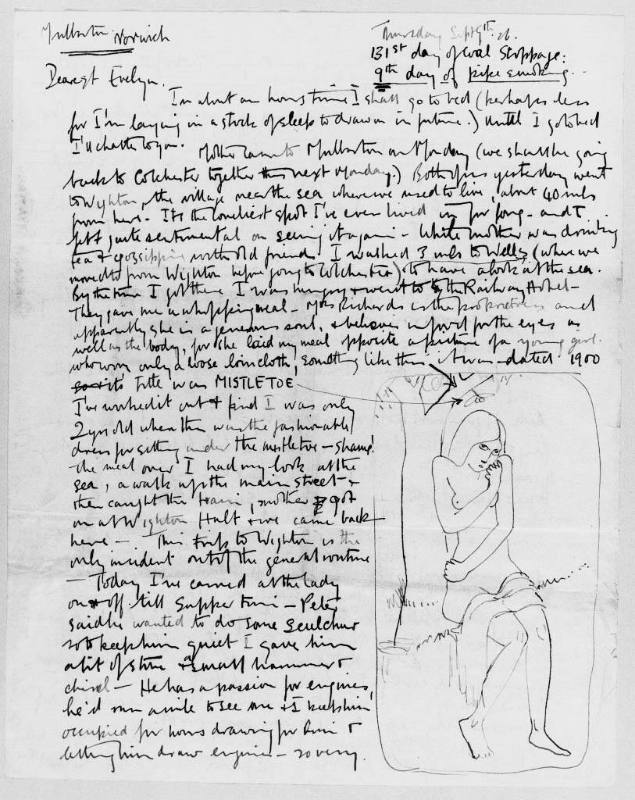 Mulbarton Norwich
Thursday Sept 9th. 26.
131st day of Coal Stoppage:
9th day of pipe smoking
Dearest Evelyn.
In about an hours time I shall go to bed (perhaps less
for I'm laying in a stock of sleep to draw on in future.) Until I go to bed
I'll chatter to you. Mother came to Mulbarton on Monday (we shall be going
back to Colchester together next Monday.) Both of us yesterday went
to Wighton, the village near the sea where we used to live, about 40 mls
from here. It's the loneliest spot I've ever lived in for long - and I
felt quite sentimental on seeing it again - While mother was drinking
tea & gossipping with old friends I walked 3 mls to Wells (where we
moved to from Wighton before going to Colchester) to have a look at the sea.
By the time I got there I was hungry & went to the Railway Hotel -
They gave me a whopping meal - Mrs Richards is the proprietress and
apparently she is a generous soul, & believes in food for the eyes as
well as the body, for she laid my meal opposite a picture of a young girl
who wore only a loose loincloth, something like this it was dated 1900
its title was MISTLETOE
I've worked it out & find I was only
2 yrs old when this was the fashionable
dress for sitting under the mistletoe - shame.
The meal over I had my look at the
sea, a walk up the main street &
then caught the train, mother got
on at Wighton Halt & we came back
here - This trip to Wighton is the
only incident out of the general routine
- Today I've carved at the lady
on & off till supper time - Peter
said he wanted to do some sculchur
so to keep him quiet I gave him
a bit of stone & a small hammer &
chisel - He has a passion for engines,
he'd run a mile to see one & I keep him
occupied for hours drawing for him &
letting him draw engines -